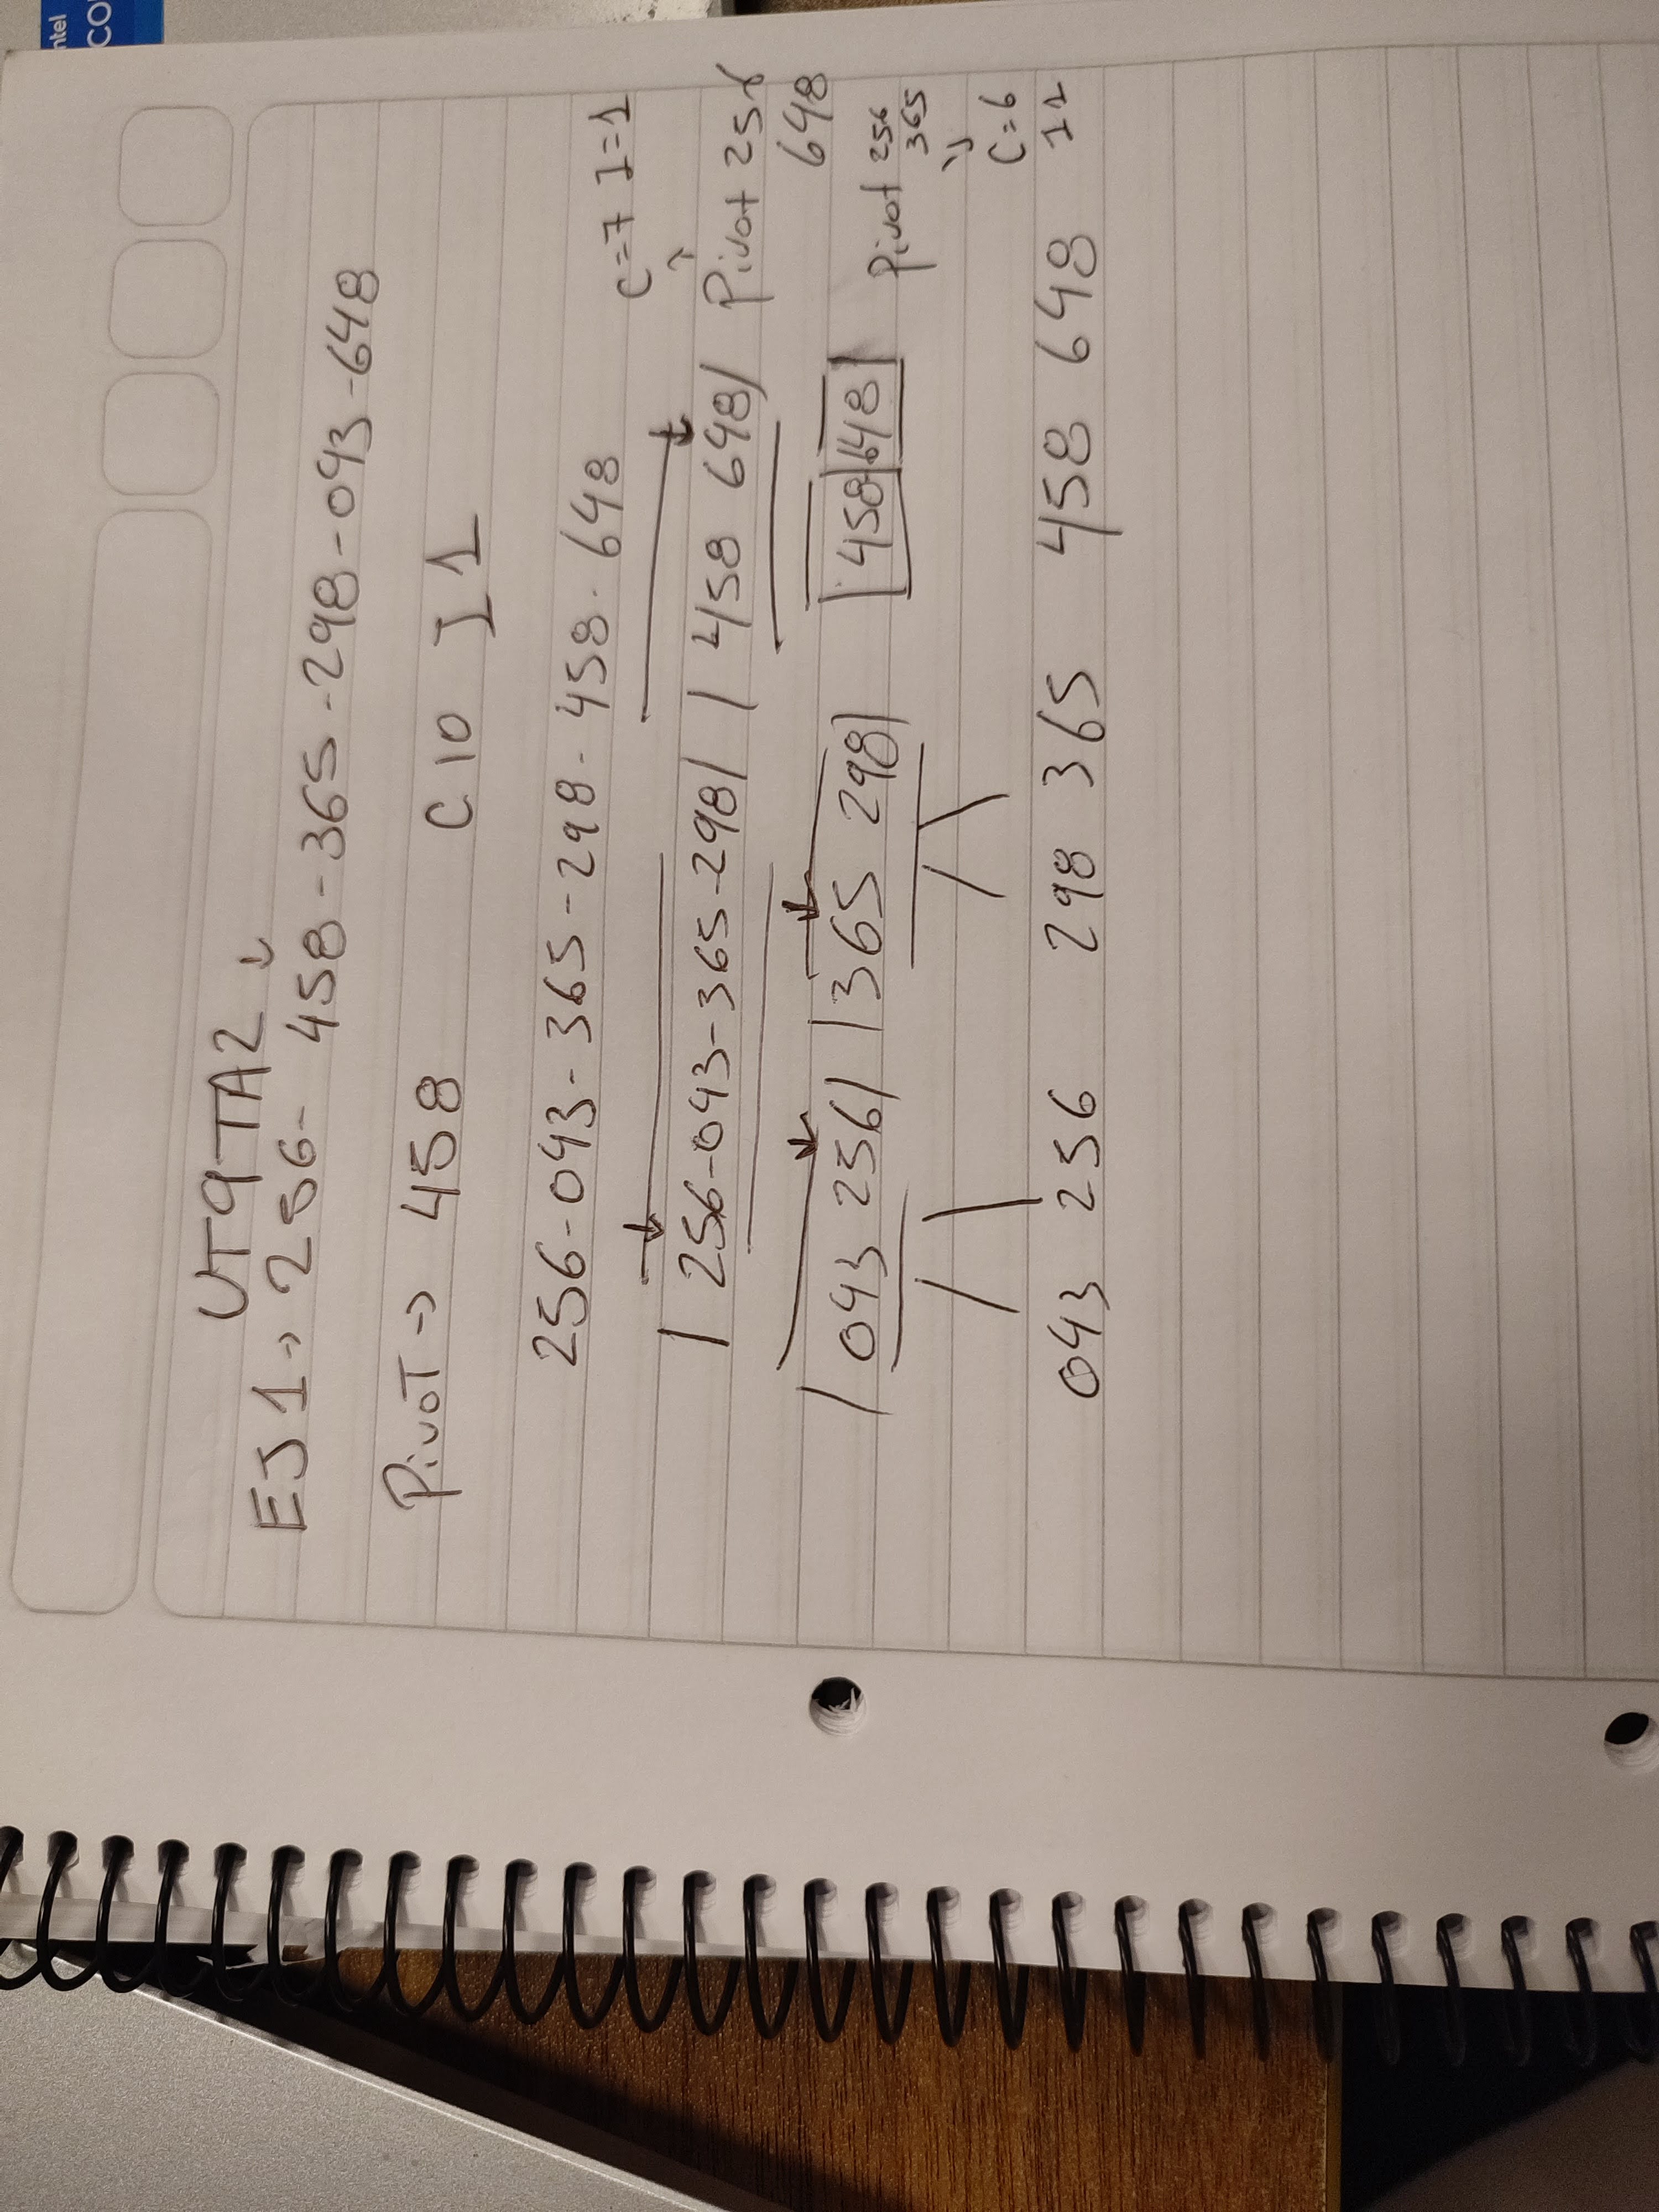 ntel
CO
UT9-TA2 ↓
EJ1 → 256- 458-365-298-093-648
PivoT → 458 C 10 I 1
256-043-365-298-458.648
C=7 I=1
| 256-043-365-298/ | 458 648/ Pivot 256
648
/ 043 256/ /365 298/ |458|648| Pivot 256
365
C=6
043 256 298 365 458 648 I1